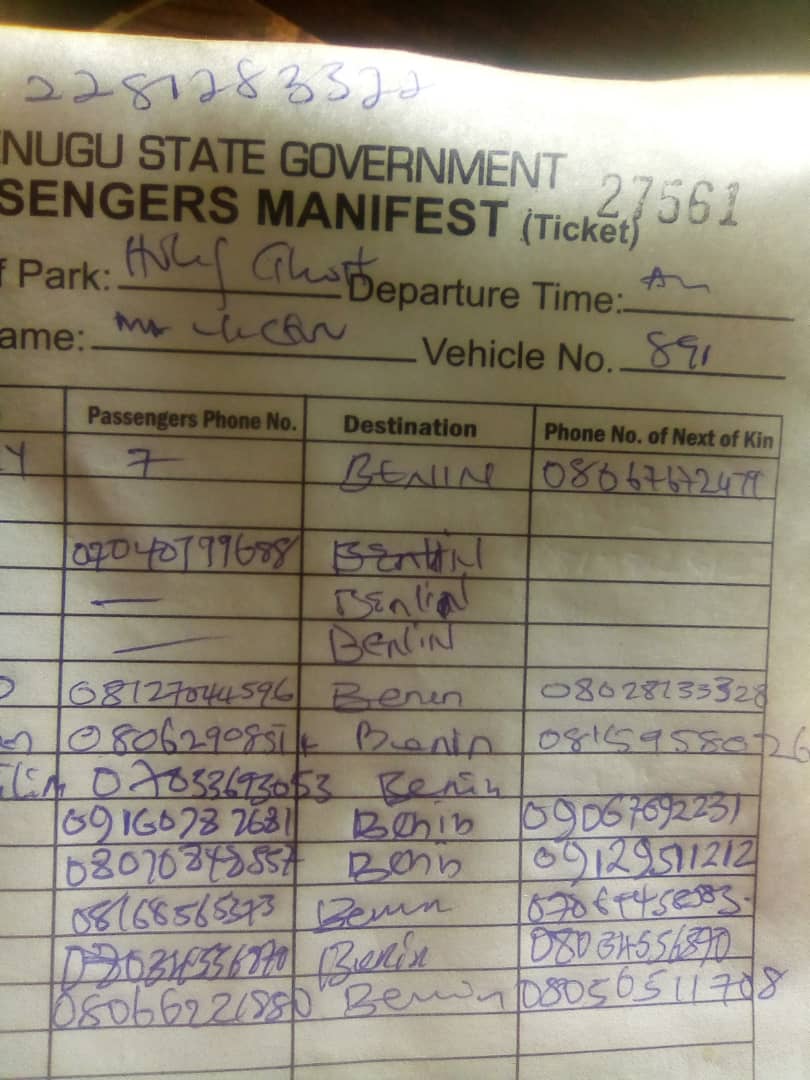 2281283322
NUGU STATE GOVERNMENT
SENGERS MANIFEST (Ticket) 27561
f Park: Holy Ghost Departure Time: Am
ame: Mr Vehicle No. 891
Passengers Phone No. Destination Phone No. of Next of Kin
Y 7 BENIN 08067672479
07040799688 BENIN
— BENIN
— BENIN
08127044596 Benin 08028133328
08062908514 Benin 08159580726
07033693053 Benin
09160787681 Benin 09067692231
08070848557 Benin 09129511212
08168565373 Benin
Benin 08034556890
08066221880 Benin 08050511708